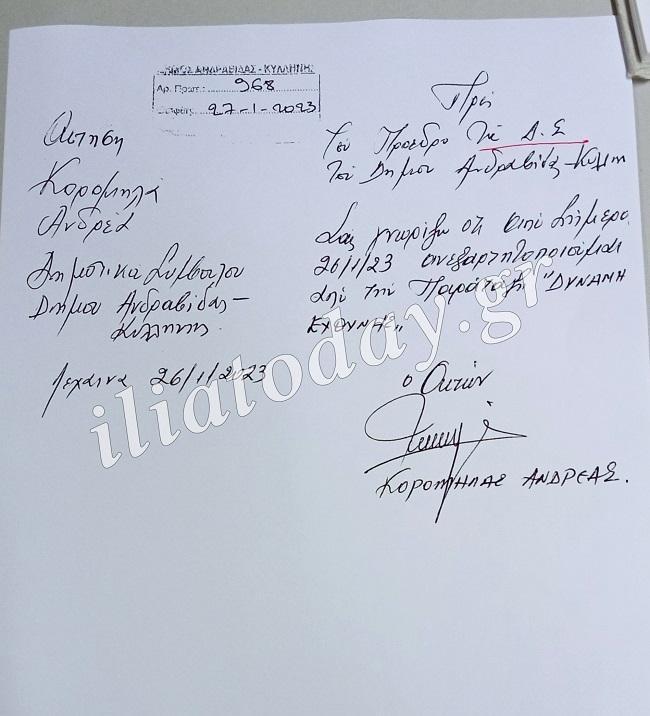 ΔΗΜΟΣ ΑΝΔΡΑΒΙΔΑΣ - ΚΥΛΛΗΝΗΣ
Αρ. Πρωτ.: 968
27-1-2023
Αίτηση
Κορομηλά
Ανδρέα
Δημοτικού Συμβούλου
Δήμου Ανδραβίδας -
Κυλλήνης
Λεχαινά 26/1/2023
Προς
Τον Πρόεδρο Του Δ.Σ
Του Δήμου Ανδραβίδας-Κυλλη
Σας γνωρίζω οτι από Σήμερα
26/1/23 ανεξαρτητοποιούμαι
από την Παράταξη "ΔΥΝΑΜΗ
ΕΥΘΥΝΗΣ"
ο Αιτών
ΚΟΡΟΜΗΛΑΣ ΑΝΔΡΕΑΣ.
iliatoday.gr